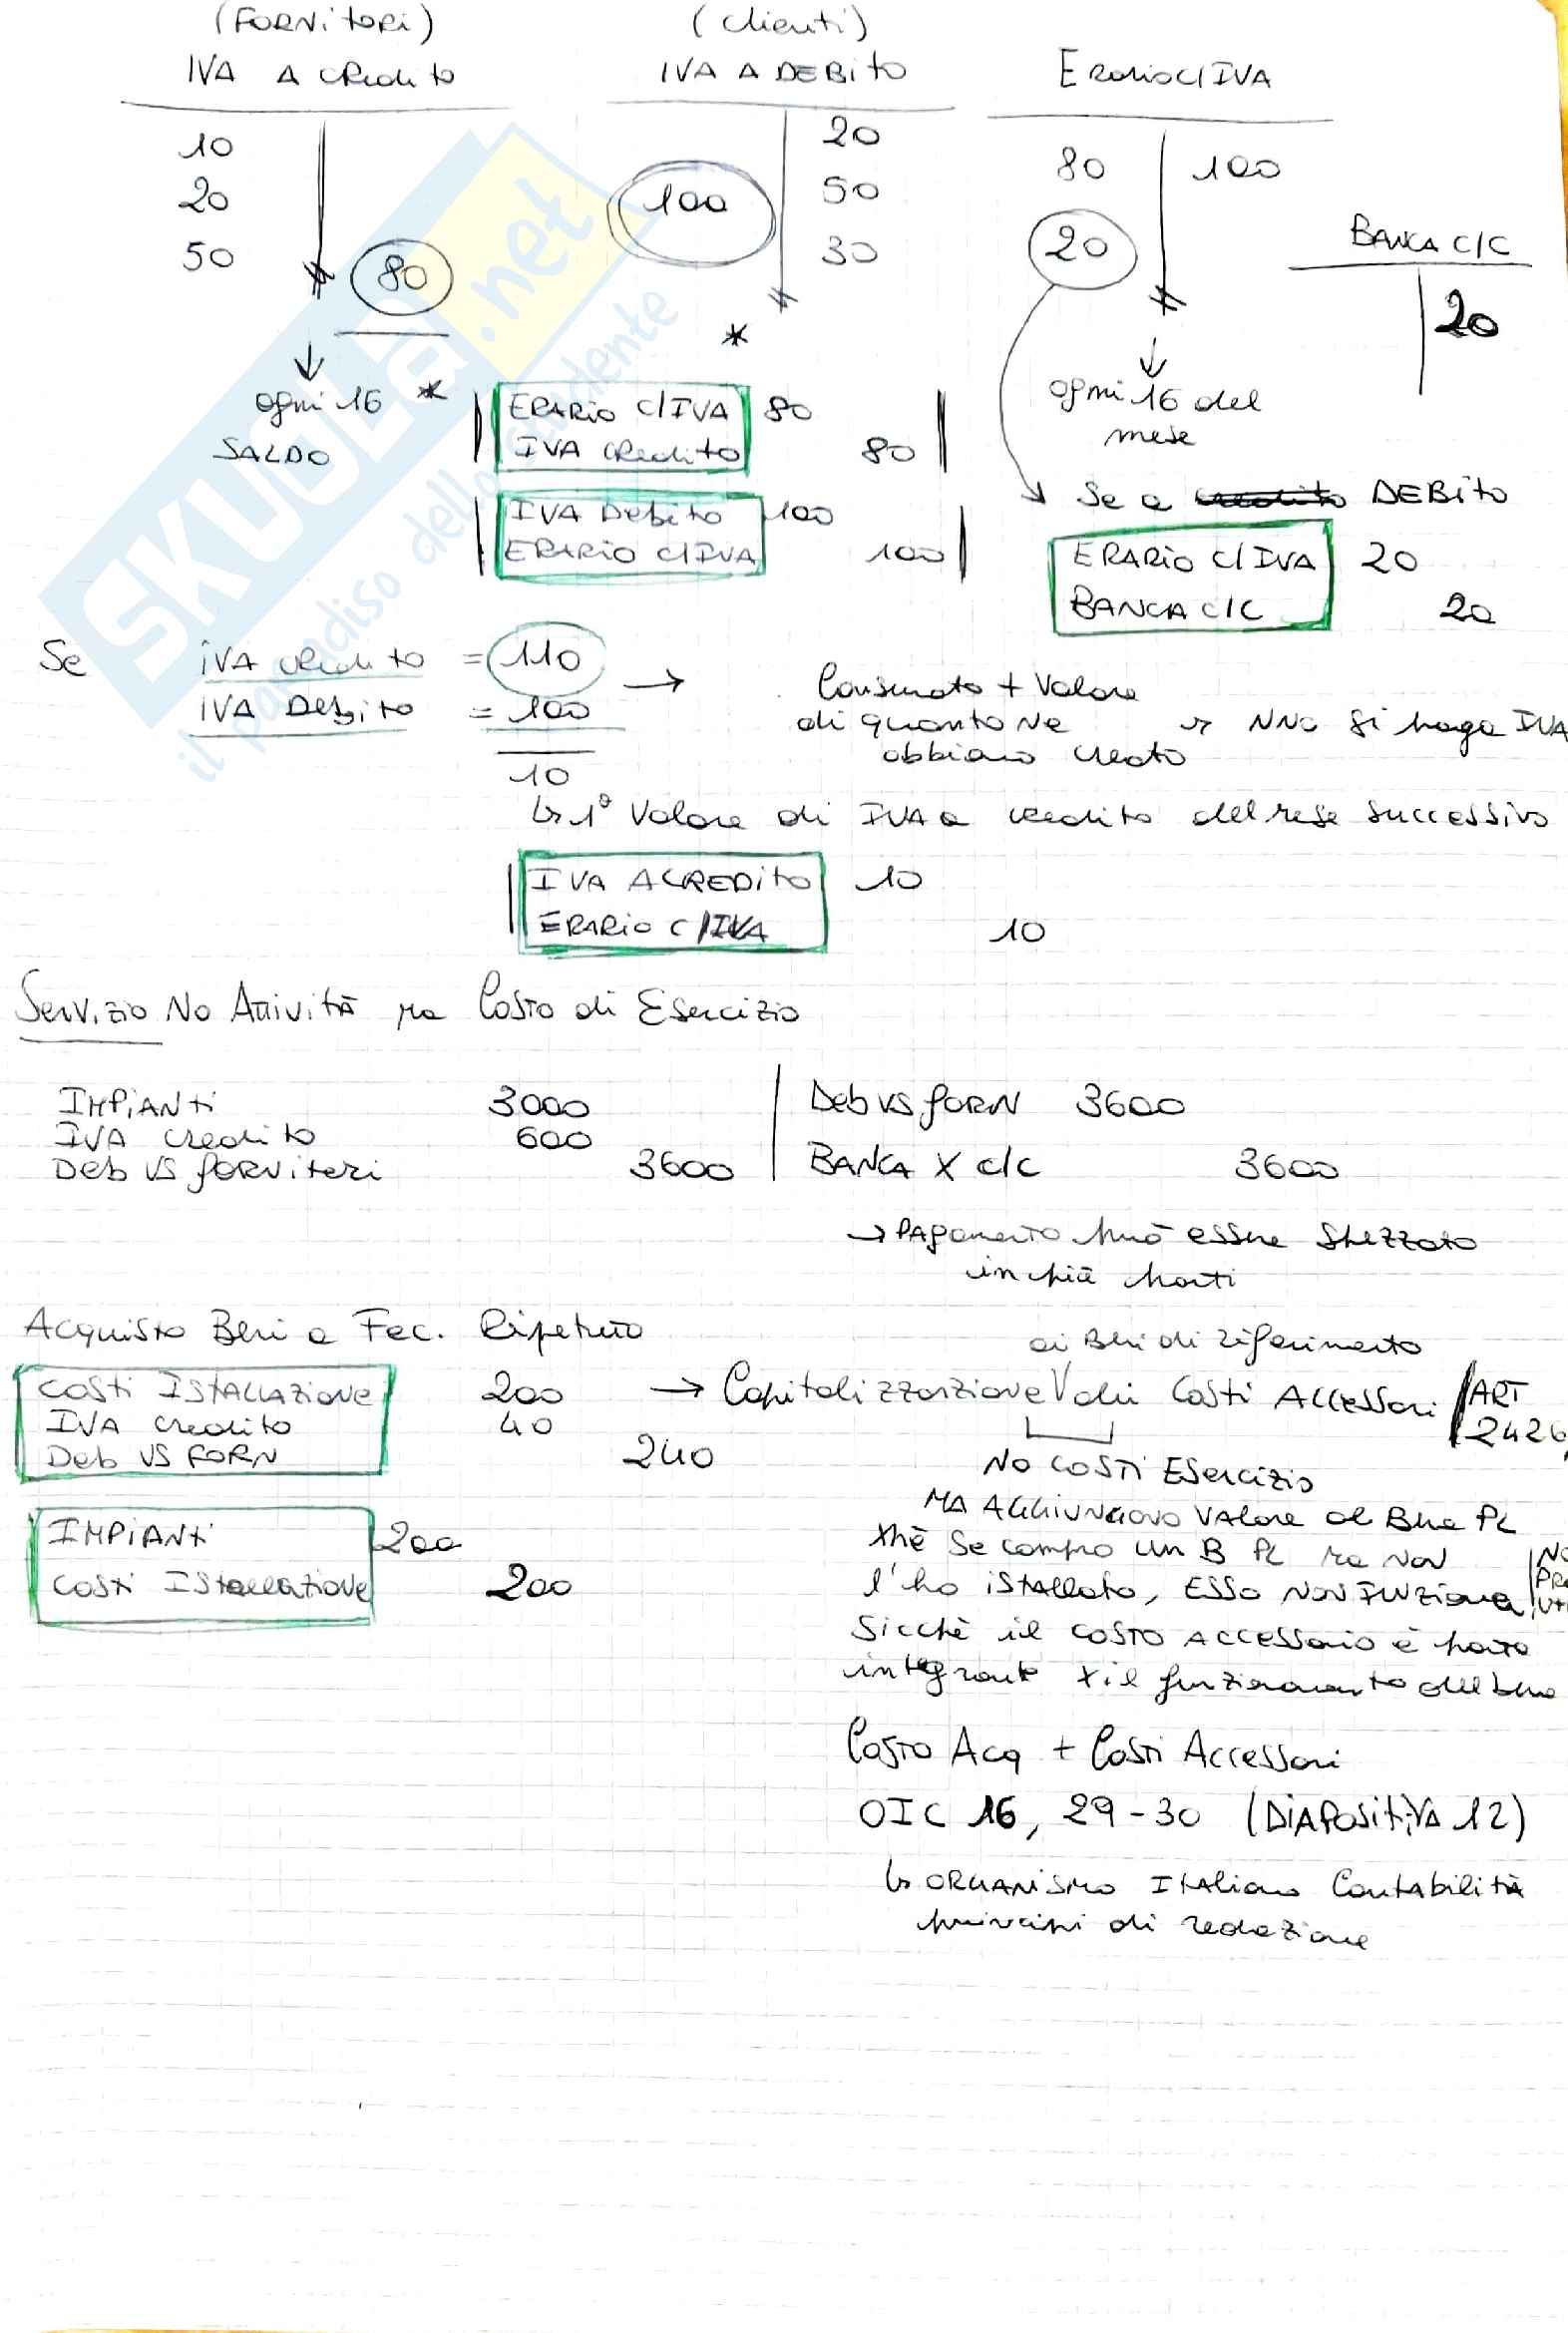 (FORNitori)
IVA A credito
10
20
50
80
(clienti)
IVA A DEBito
100
20
50
30
Erario C/IVA
80
20
100
BANCA C/C
20
SKUOLA.net
il paradiso dello studente
ogni 16 *
SALDO
*
ERARio C/IVA 80
IVA credito 80
IVA Debito 100
ERARio C/IVA 100
ogni 16 del
mese
Se a credito DEBito
ERARio C/IVA 20
BANCA C/C 20
Se IVA credito = 110
IVA Debito = 100
10
Consumato + Valore
di quanto ne
abbiamo creato
si paga IVA
1° Valore di IVA a credito del mese successivo
IVA A CREDito 10
ERARio C/IVA 10
Servizio No Attività ma Costo di Esercizio
IMPiANti 3000
IVA credito 600
Deb VS forNitori 3600
Deb VS forN 3600
BANCA X c/c 3600
→ PAgamento può essere spezzato
in più parti
Acquisto Beni a Fec. Ripetuto
COSti IStALLAZiONE 200
IVA credito 40
Deb VS FORN 240
IMPiANti 200
COSti IStallaziONe 200
ai Beni di riferimento
→ Capitalizzazione V dei Costi Accessori
ART
2426,
NO COSTi ESercizio
MA AGGiUNGONO VALore al Bene PL
xhè Se compro UN B PL ma NON
l'ho iStallato, ESSO NON FUNZiona,
Sicchè il COSTO ACCESSorio è parte
integrante x il funzionamento del bene
Costo Acq + Costi Accessori
OIC 16, 29-30 (DiAPOSitiVA 12)
↳ ORGANiSmo ITAliano Contabilità
principi di redazione